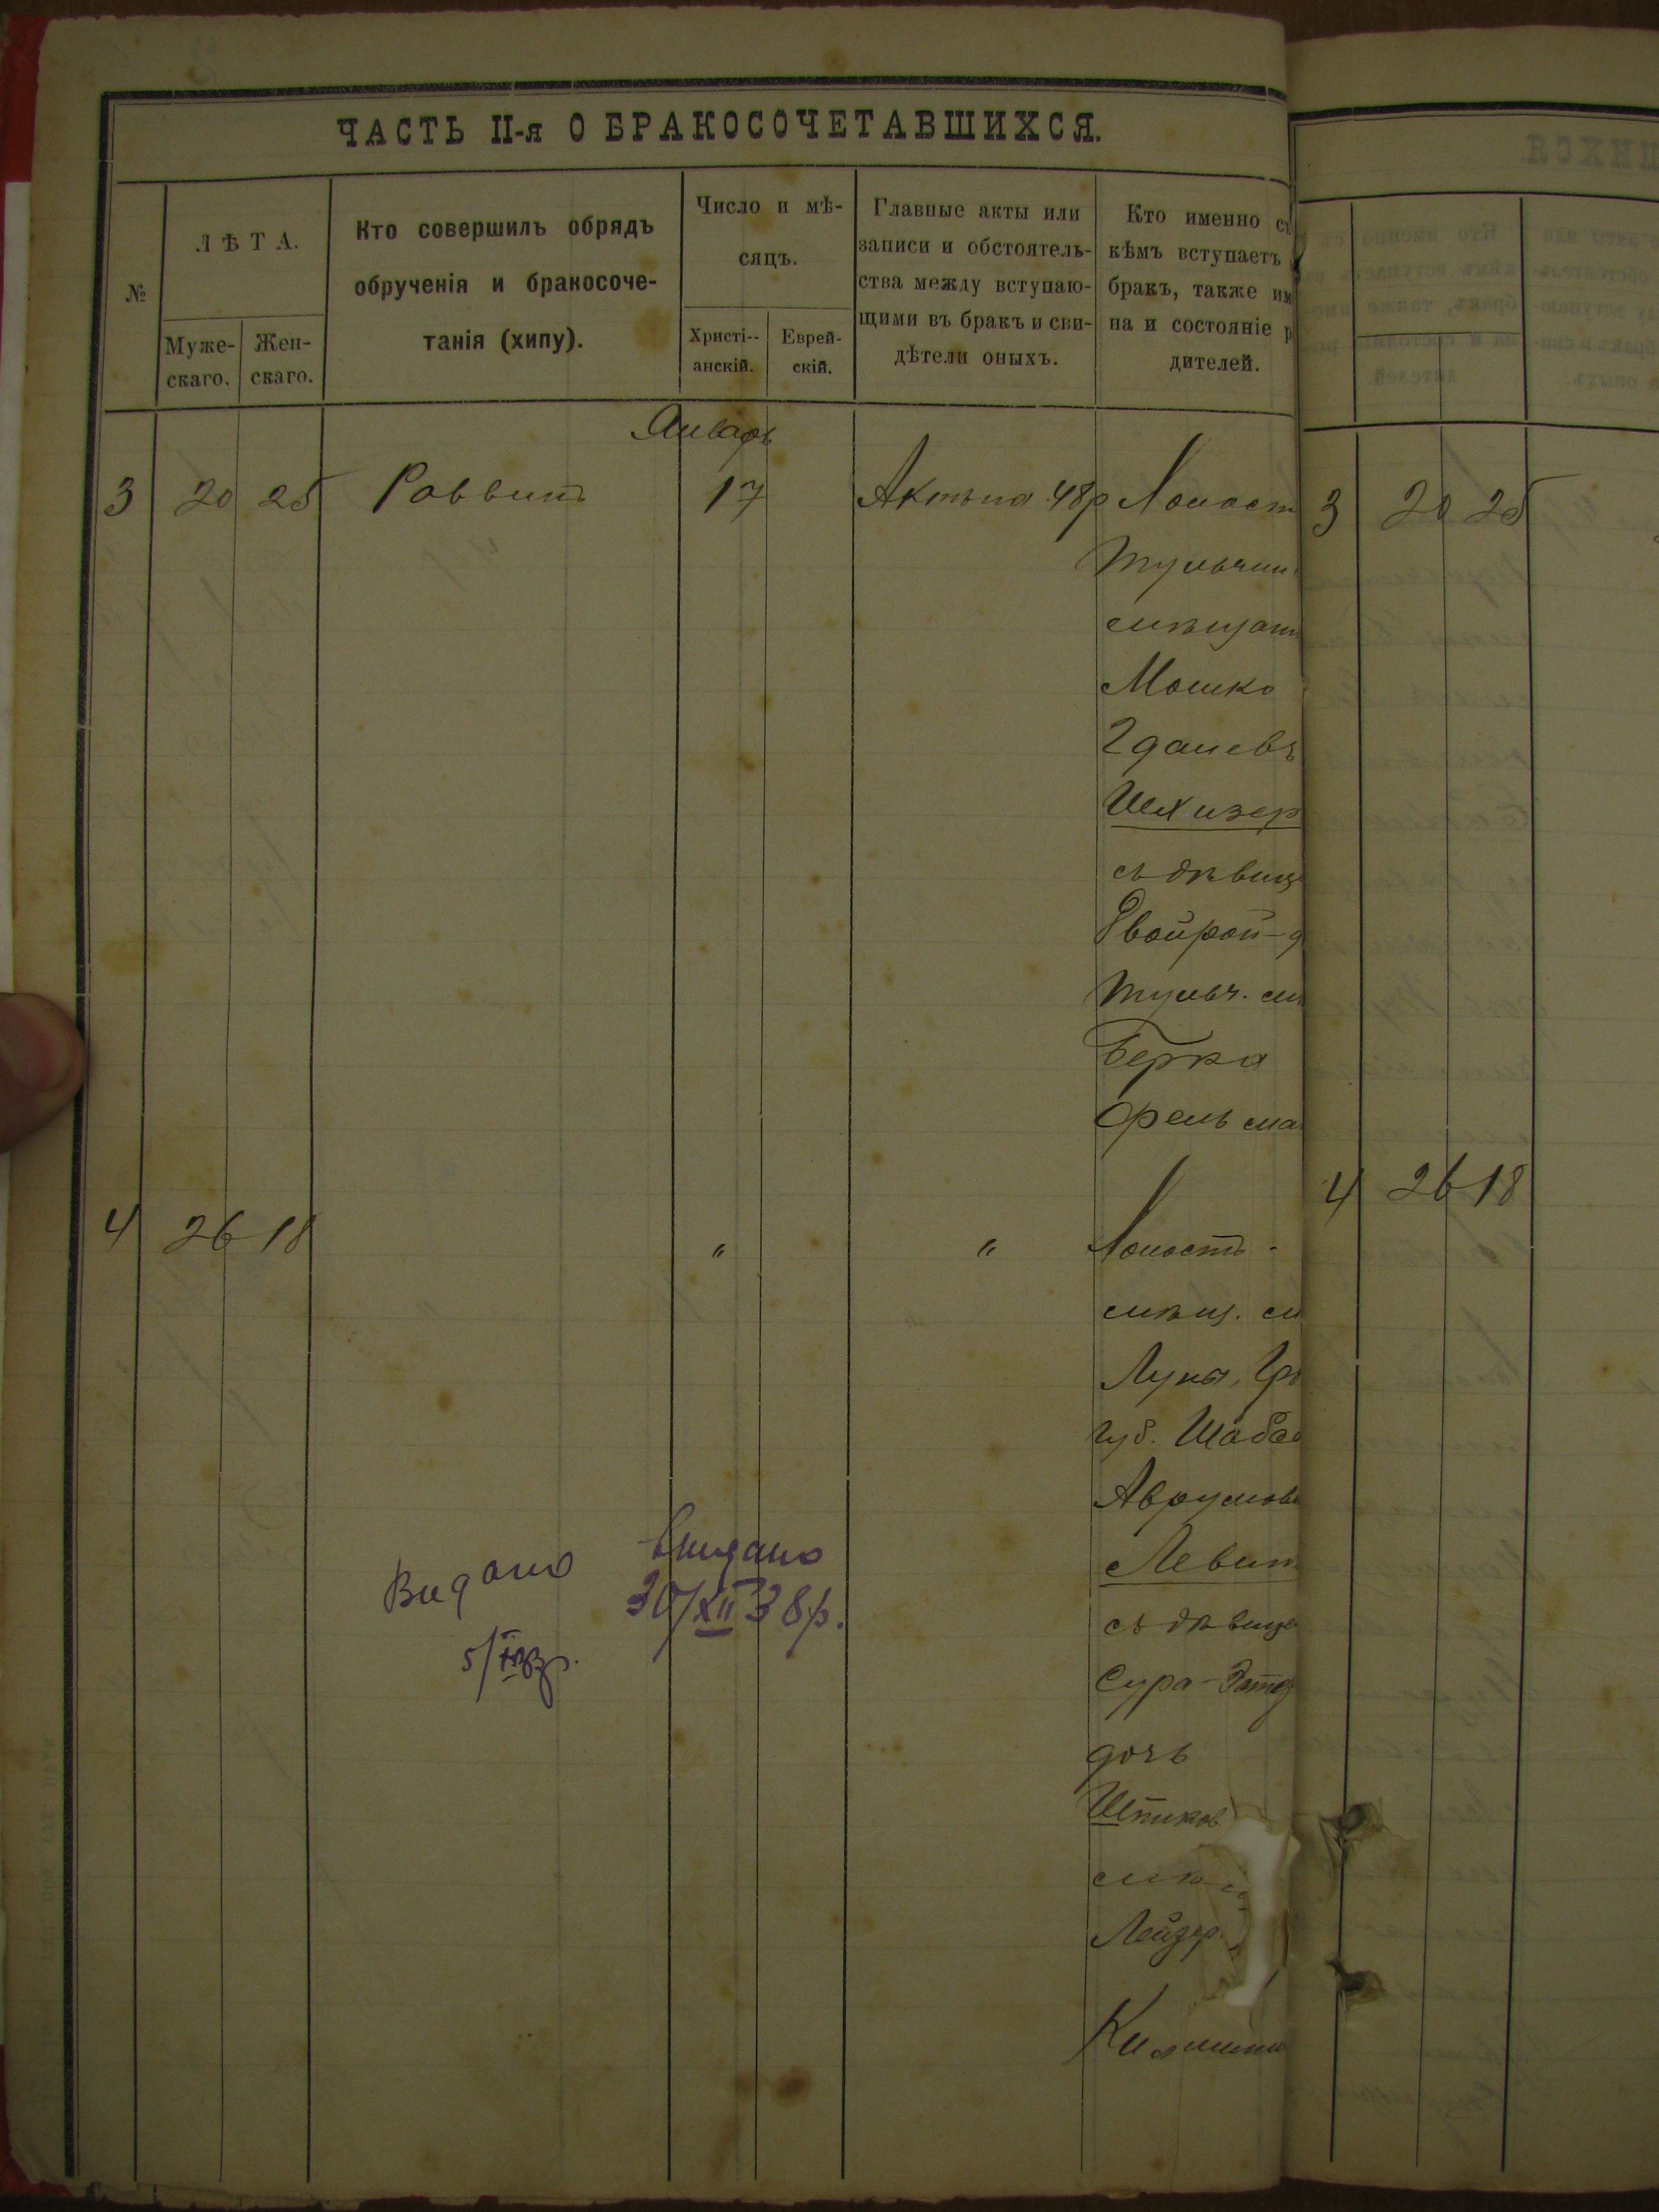 ЧАСТЬ II-я О БРАКОСОЧЕТАВШИХСЯ.
№
ЛѢТА.
Муже-
скаго.
Жен-
скаго.
Кто совершилъ обрядъ
обрученія и бракосоче-
танія (хипу).
Число и мѣ-
сяцъ.
Христі--
анскій.
Еврей-
скій.
Главные акты или
записи и обстоятель-
ства между вступаю-
щими въ бракъ и сви-
дѣтели оныхъ.
Кто именно съ
кѣмъ вступаетъ
бракъ, также им
на и состояніе р
дителей.
Январь
3 20 25 Раввинъ 17 Актъ на 48р Холост
Тульчин
мѣщан
Мошко
Шхизер
съ дѣвице
Двойрой-д
Тульч. мѣ
Берка
Орель ма
4 26 18 " " Холостъ
мѣщ. м
Луны, Гр
губ. Шаба
Аврумов
Левин
съ дѣвице
Сура-
дочь
Шпиков
мѣщ
Лейзер
Видано
Видано
30/XII 38р.
3 20 25
4 26 18